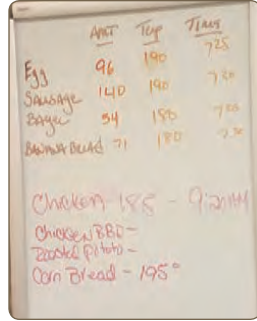 AMT Temp Time
Egg 96 190 7:25
Sausage 140 190
Bagel 54 180
Banana Bread 71 180
Chicken 185 - 9:20AM
Chicken BBQ -
Roasted Potato -
Corn Bread - 195°